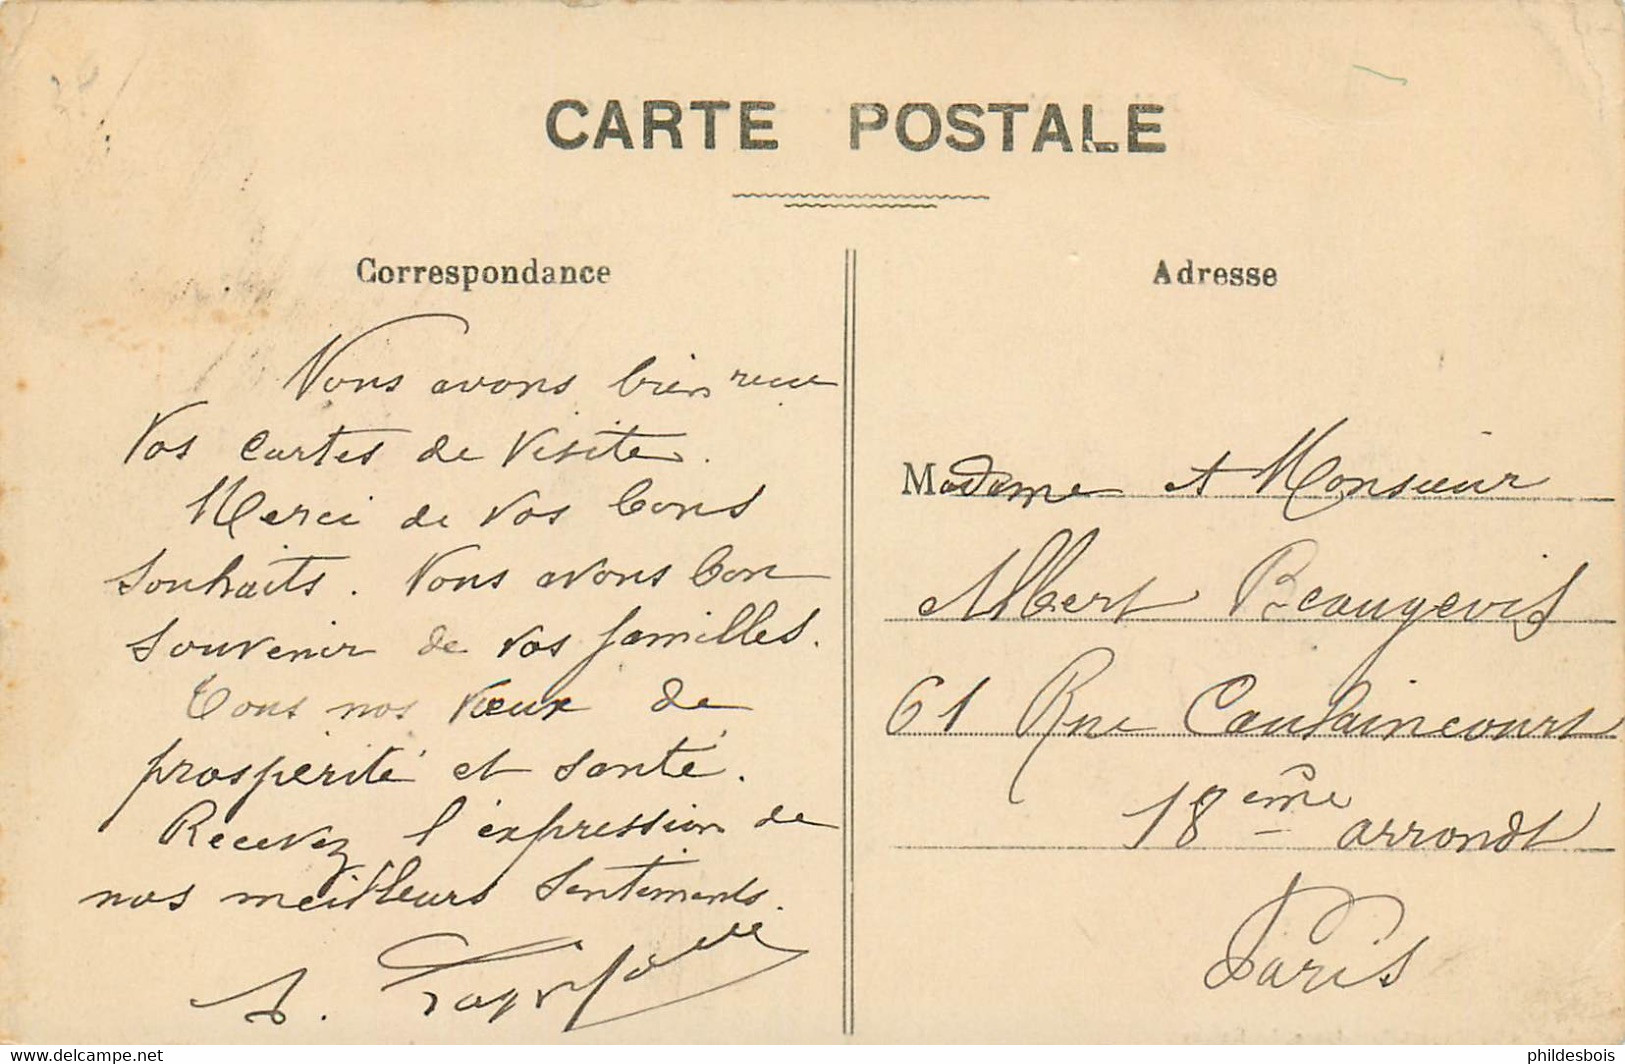 CARTE POSTALE
Correspondance
Nous avons bien recu
Vos cartes de visite.
Merci de vos bons
souhaits. Nous avons bon
souvenir de vos familles.
Tous nos vœux de
prospérité et santé.
Recevez l'expression de
nos meilleurs sentiments.
Adresse
Madame et Monsieur
Albert
61 Rue Caulaincourt
18ème arrondt
Paris
phildesbois